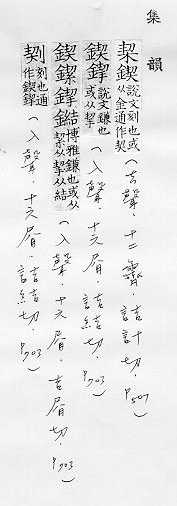 集韻
栔鍥 說文刻也或从金通作契 (去聲．十二霽．詰計切．P.507)
鍥 說文鎌也或从挈 (入聲．十六屑．詰結切．P.703)
鍥 博雅鎌也或从絜从挈从結 (入聲．十六屑．吉屑切．P.703)
刻也通作鍥 (入聲．十六屑．詰結切．P.703)